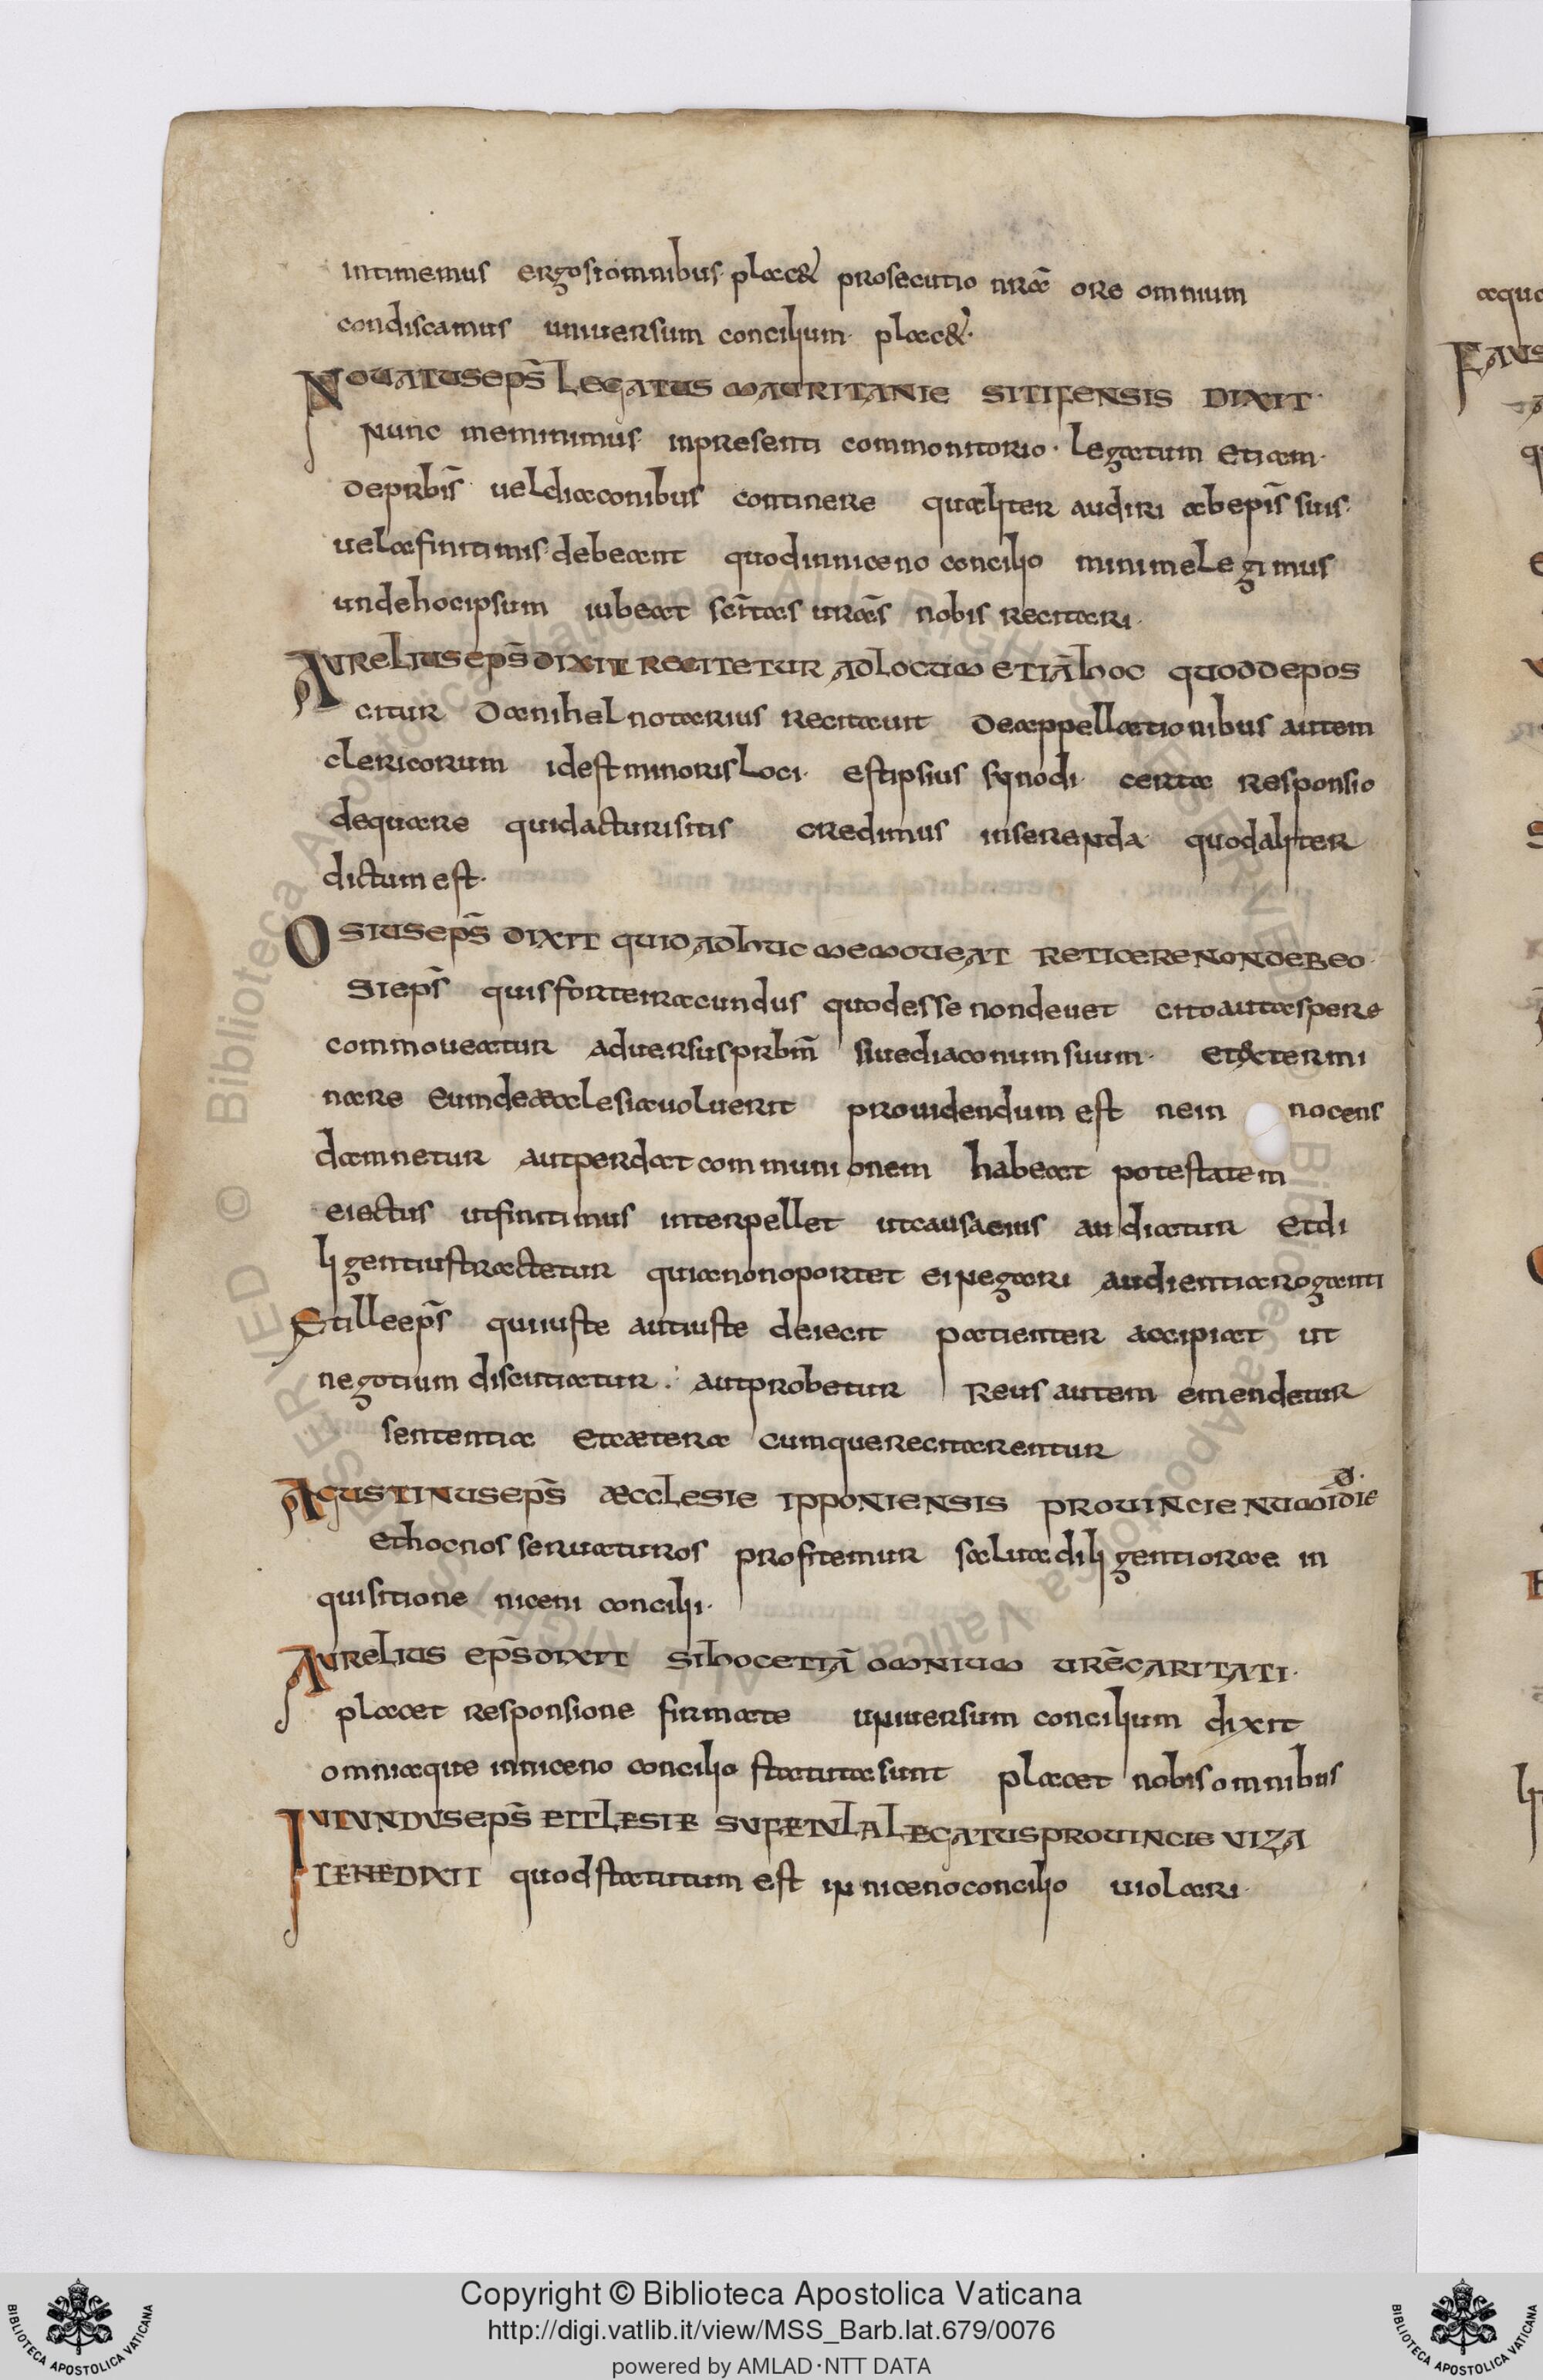 intimemus ergo si omnibus placet prosecutio nra ore omnium
condiscamus uniuersum concilium placet
NOUATUS EPS LEGATUS MAURITANIE SITIFENSIS DIXIT
Nunc meminimus in presenti commonitorio legatum etiam
de prbis uel diaconibus continere qualiter audiri ab epis suis
uel a finitimis debeant quod in niceno concilio minime legimus
unde hoc ipsum iubeat scitas uras nobis recitari
AURELIUS EPS DIXIT RECITETUR AD LOCUM ETIA HOC QUOD DEPOS
CITUR Danihel notarius recitauit De appellationibus autem
clericorum id est minoris loci est ipsius synodi certa responsio
de qua re quid acturi sitis credimus inserenda quod aliter
dictum est
OSIUS EPS DIXIT QUID ADHUC ME MOUEAT RETICERE NON DEBEO
Si eps quis forte iracundus quod esse non deuet cito aut aspere
commoueatur aduersus prbm siue diaconum suum et extermi
nare eum de aecclesia uoluerit prouidendum est ne in nocens
damnetur aut perdat communionem habeat potestatem
eiectus ut finitimus interpellet ut causa eius audiatur et di
ligentius tractetur quia non oportet ei negari audientia roganti
Et ille eps qui iuste aut iuste deiecit patienter accipiat ut
negotium discutiatur aut probetur Reus autem emendetur
sententia et caetera cumque recitarentur
AGUSTINUS EPS AECCLESIE IPPONIENSIS PROUINCIE NUMIDIE
et hoc nos seruaturos profitemur salua diligentiorae in
quisitione niceni concilii
AURELIUS EPS DIXIT SI HOC ETIA OMNIUM URE CARITATI
placet responsione firmate uniuersum concilium dixit
omnia que in niceno concilio statuta sunt placet nobis omnibus
IUCUNDUS EPS ECCLESIE SUFETULA LEGATUS PROUINCIE UIZA
CENE DIXIT quod statutum est in niceno concilio uiolari
Copyright © Biblioteca Apostolica Vaticana
http://digi.vatlib.it/view/MSS_Barb.lat.679/0076
powered by AMLAD·NTT DATA
BIBLIOTECA APOSTOLICA VATICANA
BIBLIOTECA APOSTOLICA VATICANA